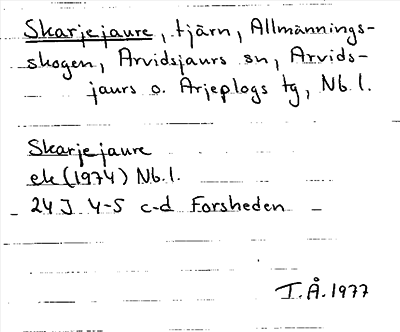 Skarjejaure, tjärn, Allmännings-
skogen, Arvidsjaurs sn, Arvids-
jaurs o. Arjeplogs tg, Nb.l.
Skarjejaure
ek (1974) Nb.l.
24J 4-5 c-d Forsheden
T.Å. 1977